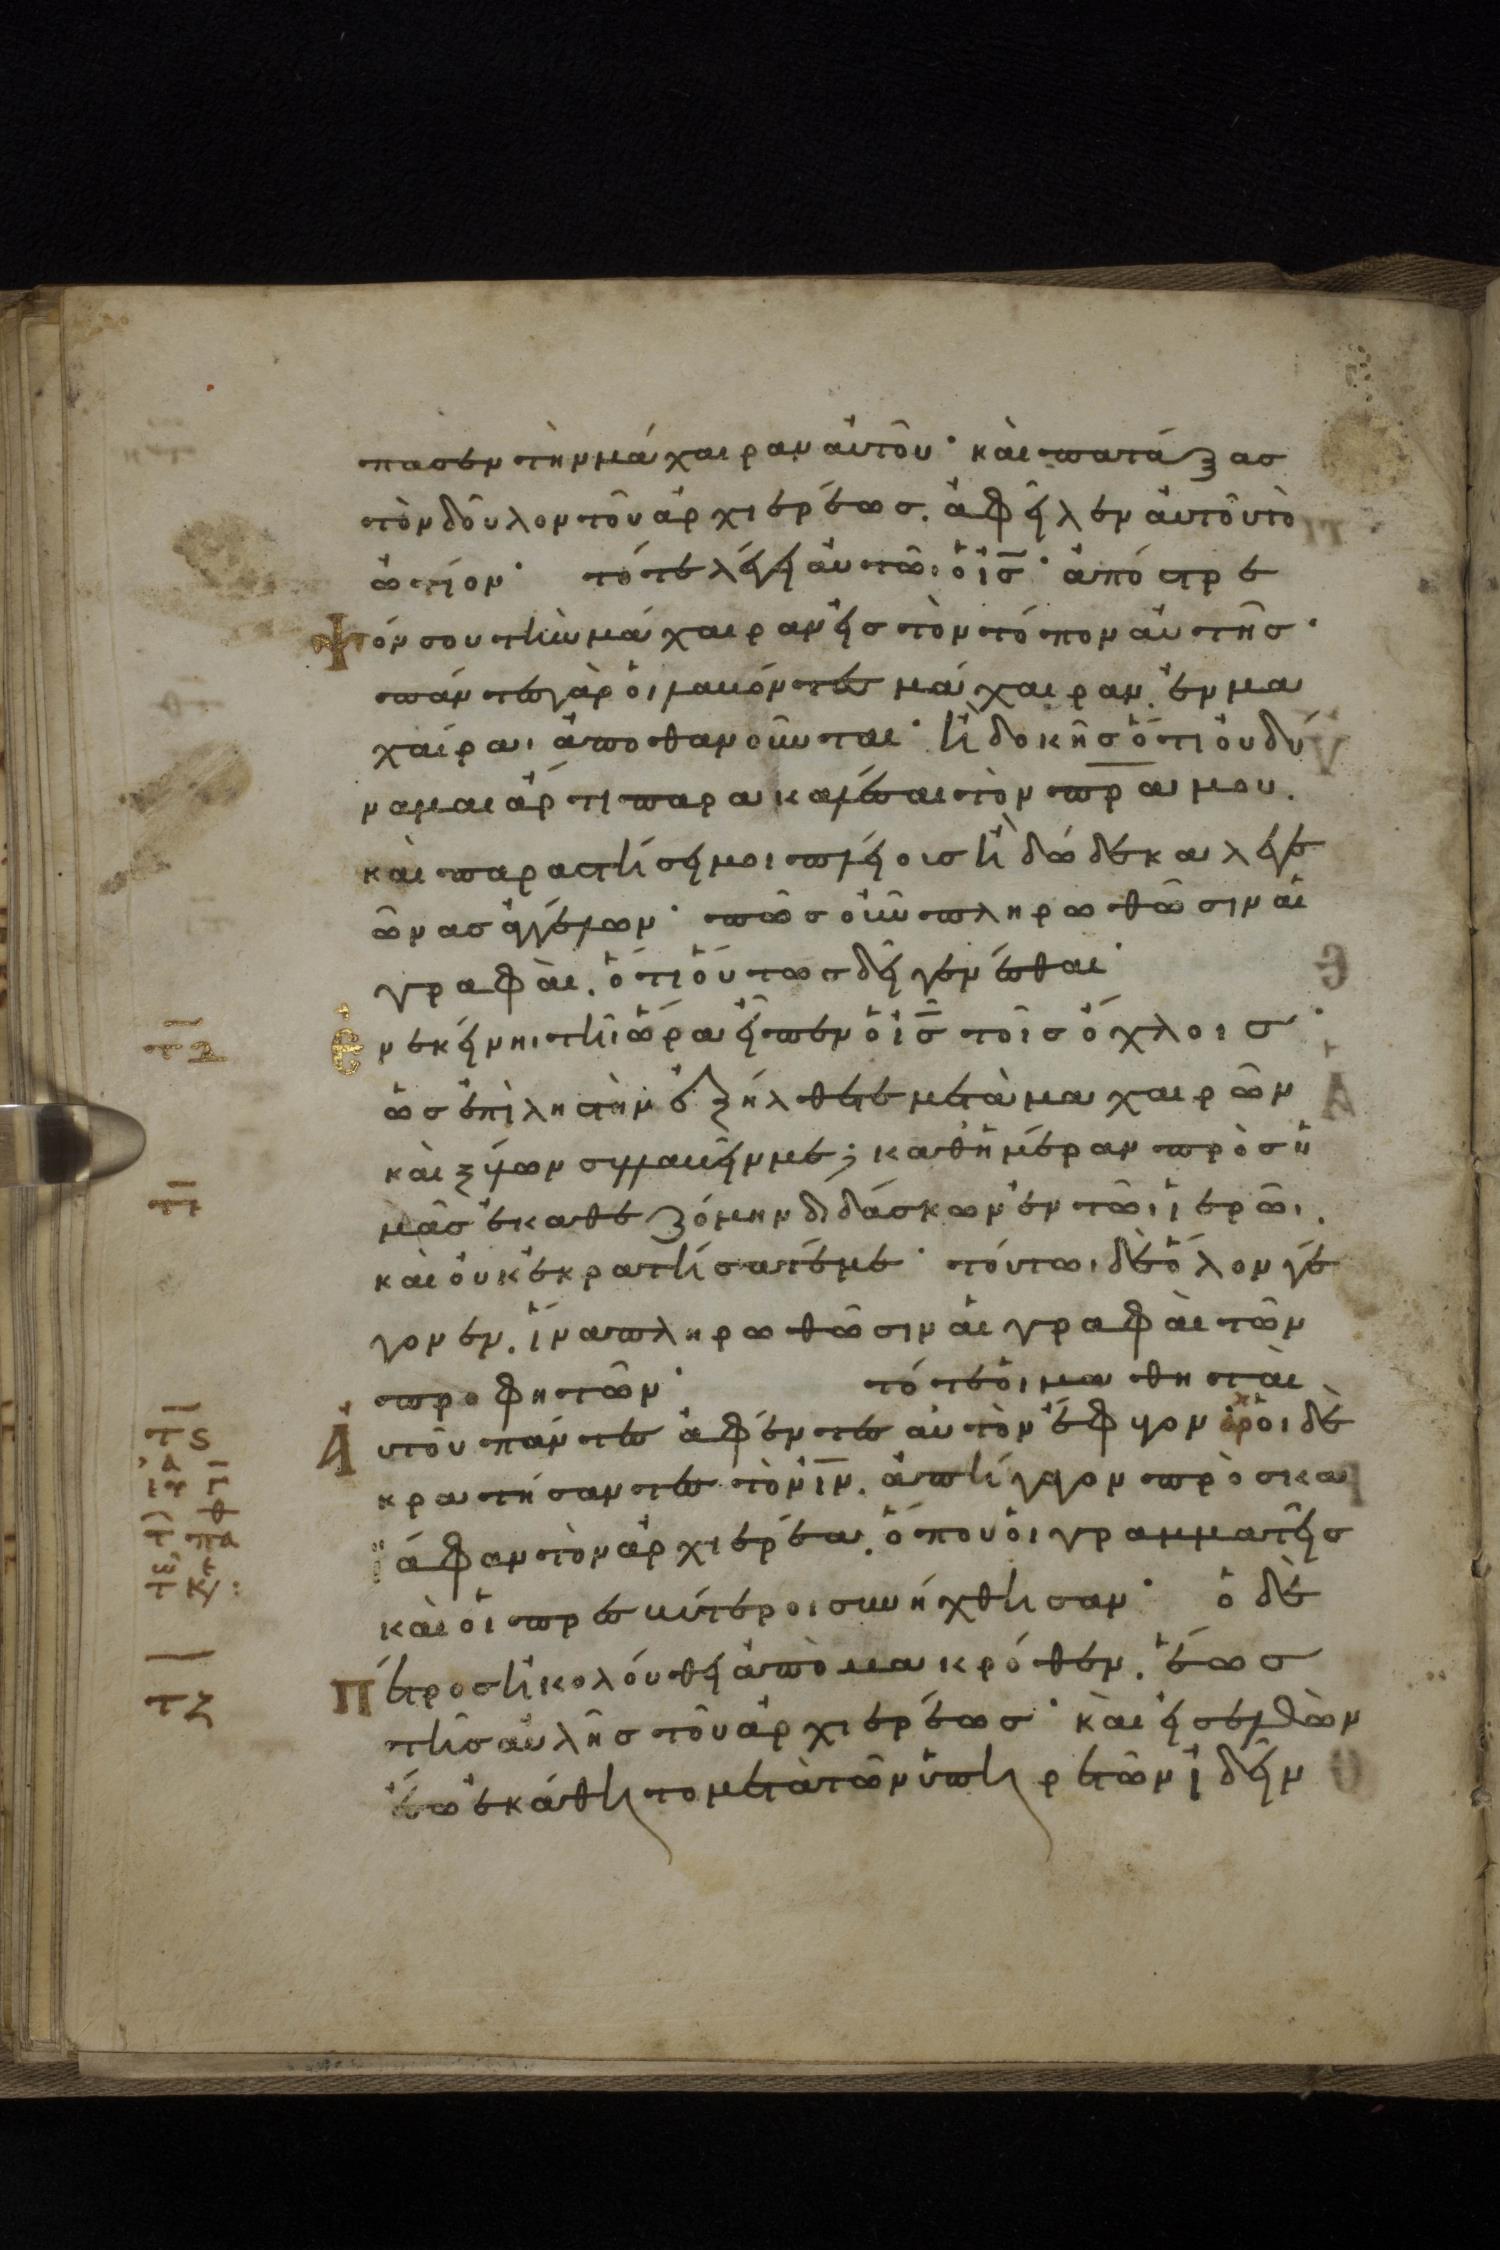 πασεν τὴν μάχαιραν αὐτοῦ· καὶ πατάξας
τὸν δοῦλον τοῦ ἀρχιερέως. ἀφεῖλεν αὐτοῦ τὸ
ὠτίον· τότε λέγει αὐτῶι ὁ ἰ̅σ̅· ἀπόστρε
ψόν σου τὴν μάχαιραν εἰς τὸν τόπον αὐτῆς·
πάντες γὰρ οἱ λαβόντες μάχαιραν. ἐν μα
χαίραι ἀποθανοῦνται· ἢ δοκῆς ὅτι οὐ δύ
ναμαι ἄρτι παρακαλέσαι τὸν π̅ρ̅α μου.
καὶ παραστήσει μοι πλείοις ἢ δώδεκα λεγε
ῶνας ἀγγέλων· πῶς οὖν πληρωθῶσιν αἱ
γραφαὶ. ὅτι οὕτως δεῖ γενέσθαι·
τ̅δ̅ Ἐν ἐκείνηι τῆι ὥρα εἶπεν ὁ ἰ̅σ̅ τοῖς ὄχλοις·
ὡς ἐπὶ ληστὴν ἐξήλθετε μετὰ μαχαιρῶν
καὶ ξύλων συλλαβεῖν με; καθημέραν πρὸς ὑ
τ̅ε̅ μᾶς ἐκαθεζόμην διδάσκων ἐν τῶι ἱερῶι.
καὶ οὐκ ἐκρατήσατέ με· τοῦτωι δὲ ὅλον γέ
γονεν. ἵνα πληρωθῶσιν αἱ γραφαὶ τῶν
προφητῶν· τότε οἱ μαθηταὶ
τ̅ς̅ Αὐτοῦ πάντες ἀφέντες αὐτὸν ἔφυγον οἱ δὲ
κρατήσαντες τὸν ἰ̅ν̅. ἀπήγαγον πρὸς κα
ϊάφαν τὸν ἀρχιερέα. ὅπου οἱ γραμματεῖς
καὶ οἱ πρεσβύτεροι συνήχθησαν· ὁ δὲ
τ̅ζ̅ Πέτρος ἠκολούθει ἀπὸ μακρόθεν. ἕως
τῆς αὐλῆς τοῦ ἀρχιερέως· καὶ εἰσελθὼν
ἔσω ἐκάθητο μετὰ τῶν ὑπηρετῶν ἰδεῖν